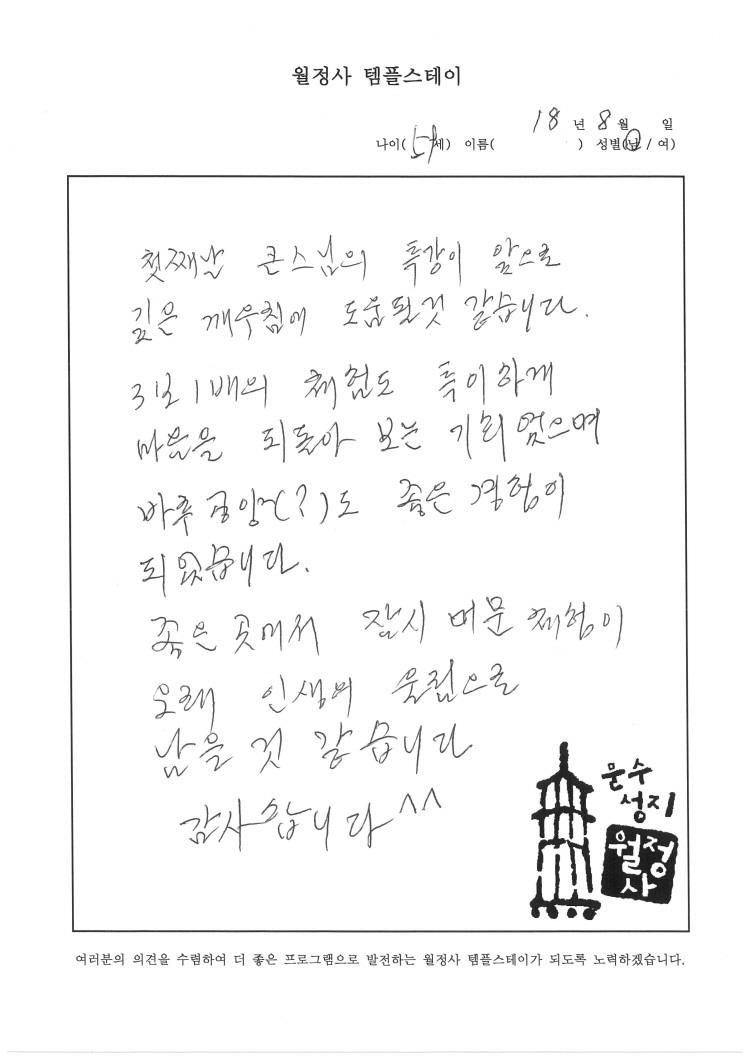 월정사 템플스테이
18 년 8 월 일
나이( 57 세) 이름( ) 성별(남 / 여)
첫째날 큰스님의 특강이 앞으로
깊은 깨우침에 도움될것 같습니다.
3보1배의 체험도 특이하게
마음을 되돌아 보는 기회였으며
바루공양(?)도 좋은 경험이
되었습니다.
좋은 곳에서 잠시 머문 체험이
오래 인생의 울림으로
남을 것 같습니다
감사합니다 ^^
문수
성지
월정
사
여러분의 의견을 수렴하여 더 좋은 프로그램으로 발전하는 월정사 템플스테이가 되도록 노력하겠습니다.